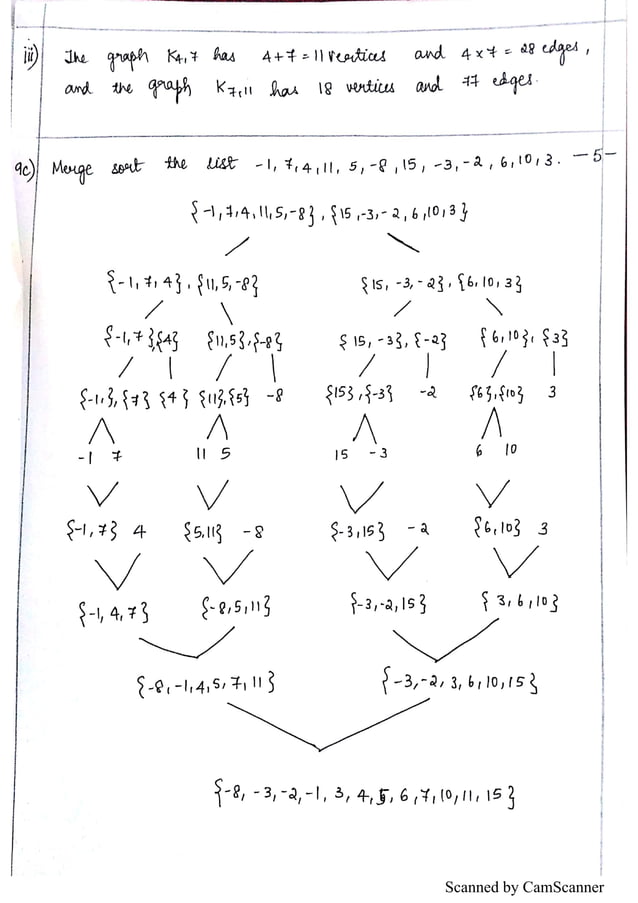 iii) The graph K4,7 has 4+7=11 vertices and 4x7=28 edges,
and the graph K7,11 has 18 vertices and 77 edges.
9c) Merge sort the list -1, 7, 4, 11, 5, -8, 15, -3, -2, 6, 10, 3. -5-
{-1, 7, 4, 11, 5, -8}, {15, -3, -2, 6, 10, 3}
{-1, 7, 4}, {11, 5, -8} {15, -3, -2}, {6, 10, 3}
{-1, 7}, {4} {11, 5}, {-8} {15, -3}, {-2} {6, 10}, {3}
{-1,}, {7} {4} {11}, {5} -8 {15}, {-3} -2 {6}, {10} 3
-1 7 11 5 15 -3 6 10
{-1, 7} 4 {5, 11} -8 {-3, 15} -2 {6, 10} 3
{-1, 4, 7} {-8, 5, 11} {-3, -2, 15} {3, 6, 10}
{-8, -1, 4, 5, 7, 11} {-3, -2, 3, 6, 10, 15}
{-8, -3, -2, -1, 3, 4, 5, 6, 7, 10, 11, 15}
Scanned by CamScanner